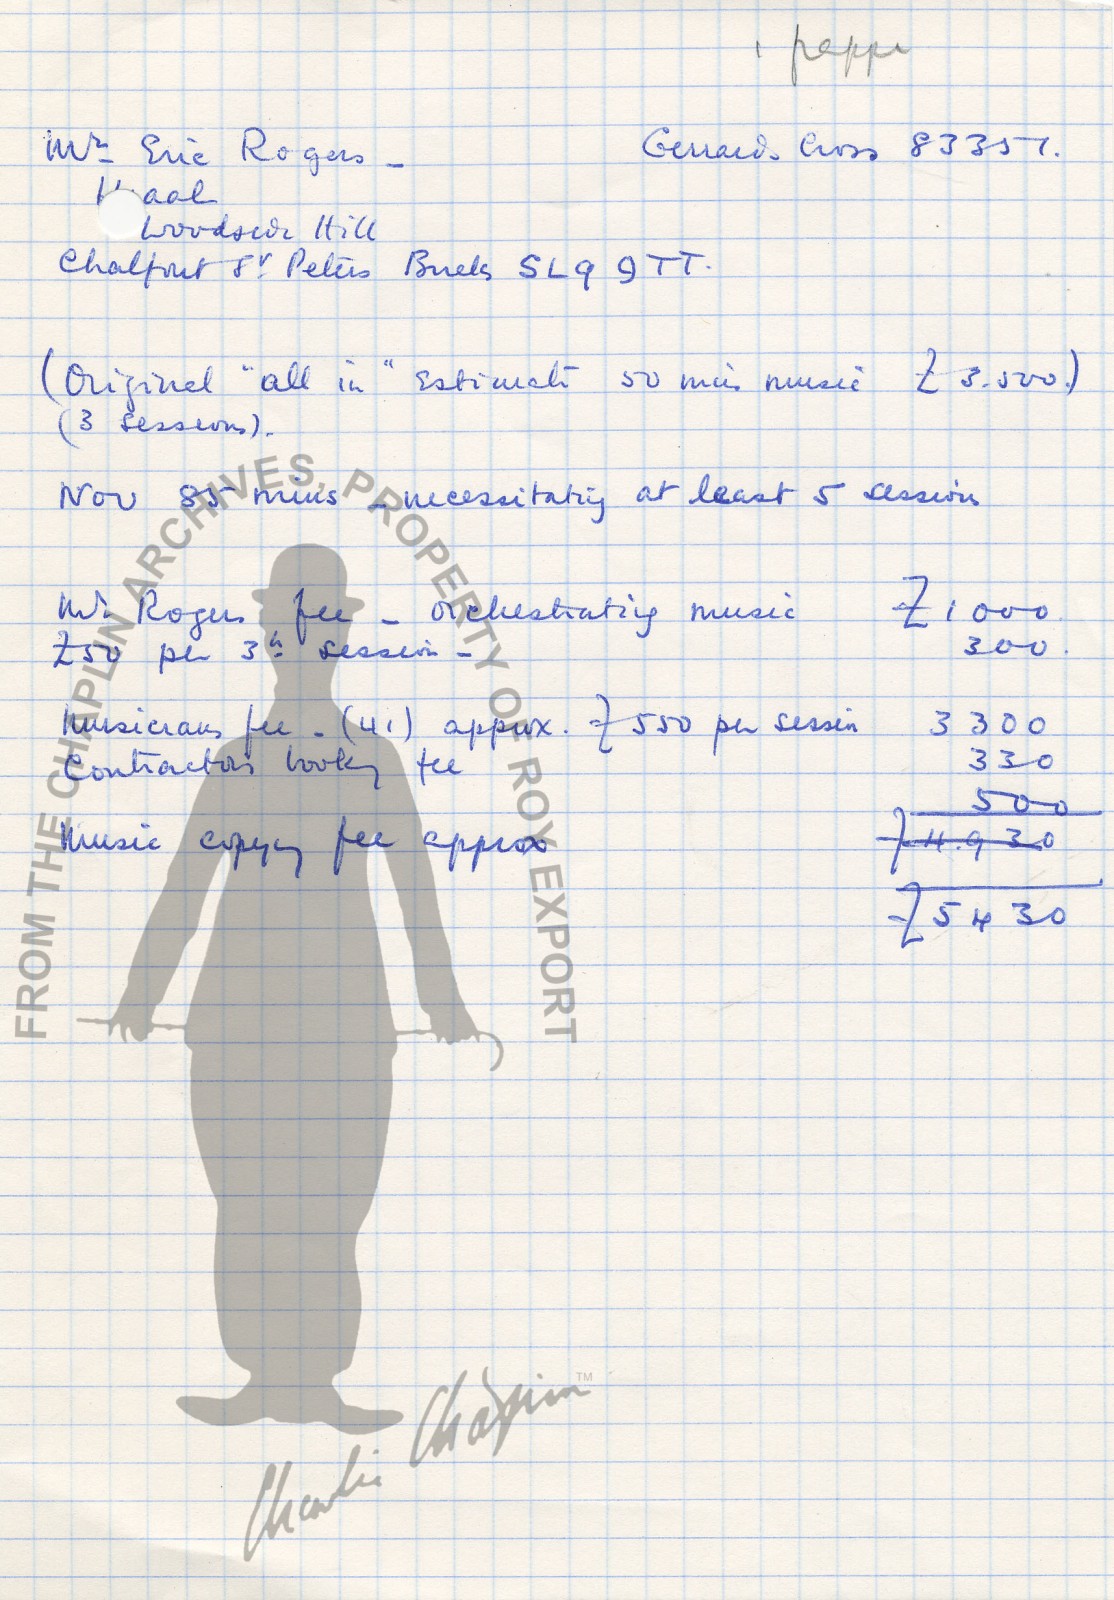 Mr Eric Rogers - Gerrards Cross 83357.
Woodside Hill
Chalfont St Peters Bucks SL9 9TT.
(Original "all in" Estimate 50 mins music £3.500.)
(3 sessions).
Now 85 mins - necessitating at least 5 session
Mr Rogers fee - orchestrating music £1000
£50 per 3h session - 300.
Musicians fee - (41) approx. £550 per session 3300
Contractors booking fee 330
500
Music copying fee approx £4.930
£5430
FROM THE CHAPLIN ARCHIVES, PROPERTY OF ROY EXPORT
Charlie Chaplin™